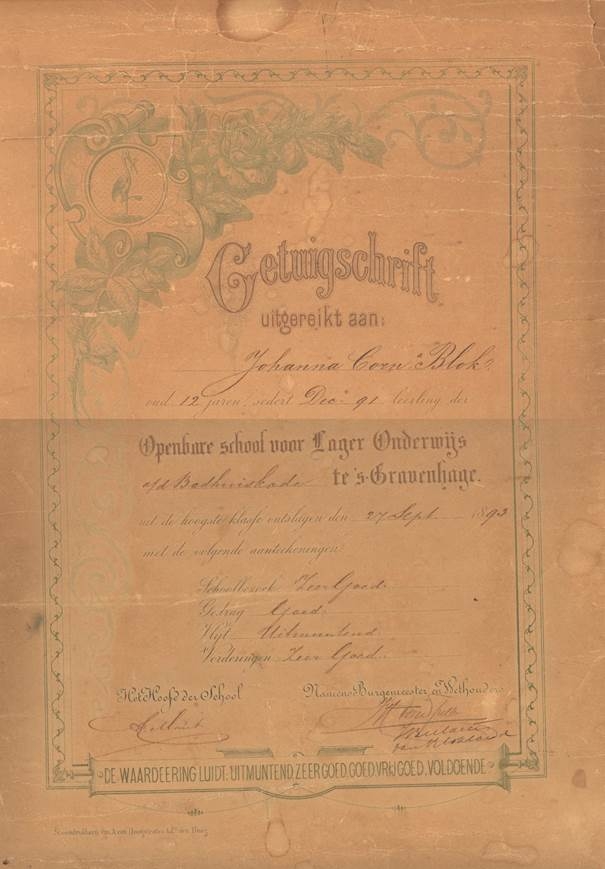 Getuigschrift
uitgereikt aan:
Johanna Corn.ª Blok.
oud 12 jaren, sedert Dec.ʳ 91 leerling der
Openbare school voor Lager Onderwijs
a/d Badhuiskade te 's-Gravenhage.
uit de hoogste klasse ontslagen den 27 Sept. 1893
met de volgende aanteekeningen:
Schoolbezoek Zeer Goed.
Gedrag Goed.
Vlijt Uitmuntend.
Vorderingen Zeer Goed.
Het Hoofd der School
Namens Burgemeester en Wethouders
DE WAARDEERING LUIDT: UITMUNTEND, ZEER GOED, GOED, VRIJ GOED, VOLDOENDE
Steendrukkerij v/h
den Haag